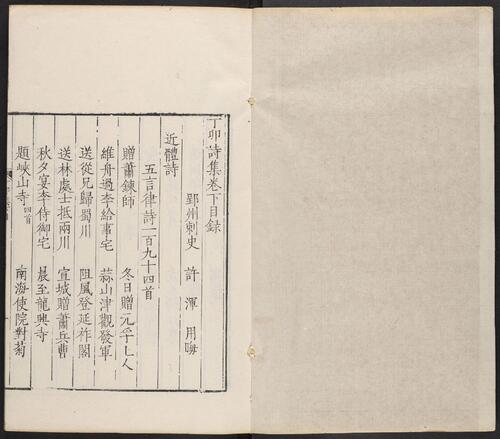 丁卯詩集卷下目錄
郢州刺史 許渾 用晦
近體詩
五言律詩一百九十四首
贈蕭鍊師 冬日贈元孚上人
維舟過李給事宅 蒜山津觀發軍
送從兄歸蜀川 阻風登延祚閣
送林處士抵兩川 宣城贈蕭兵曹
秋夕宴李侍御宅 晨至龍興寺
題峽山寺四首 南海使院對菊